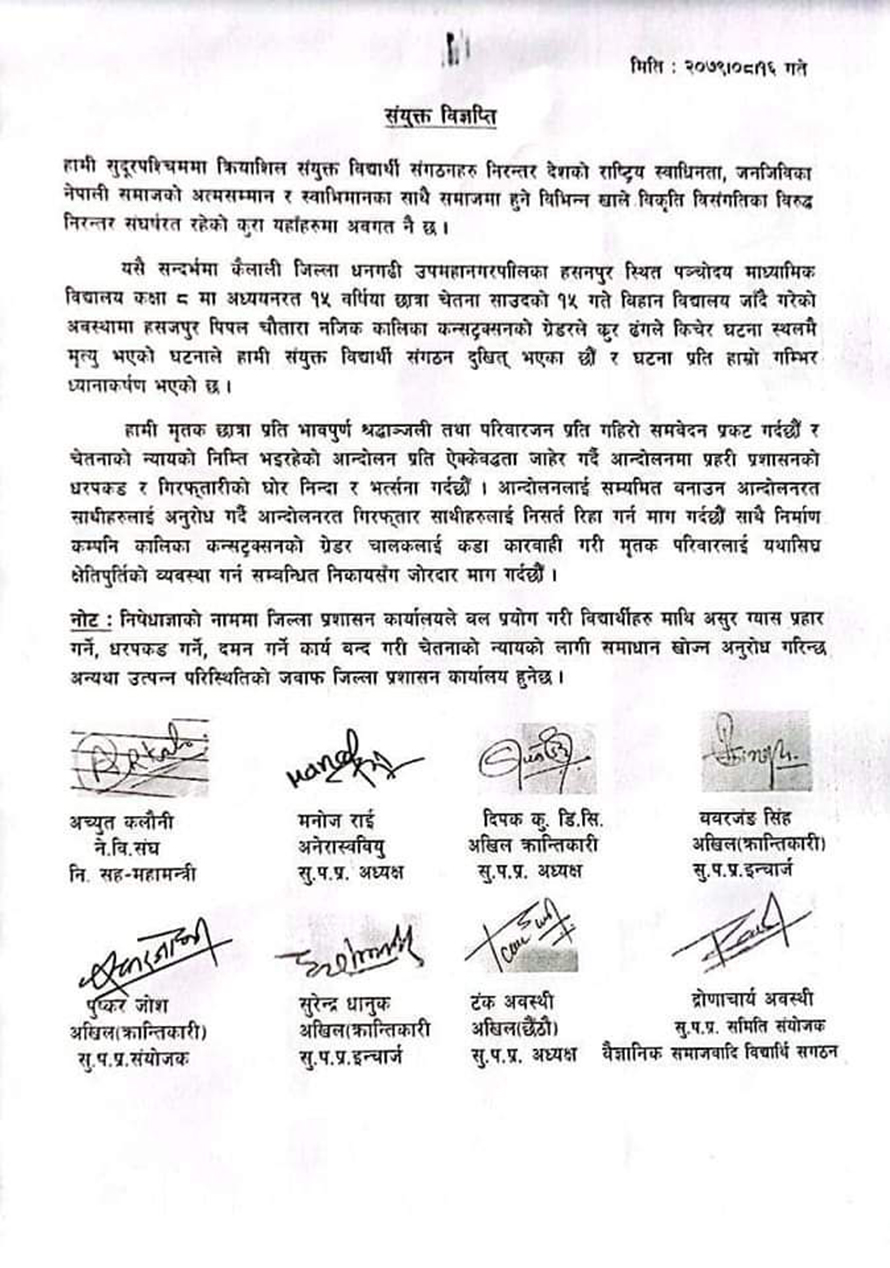 मिति : २०७९।०८।१६ गते
संयुक्त विज्ञप्ति
हामी सुदूरपश्चिममा क्रियाशिल संयुक्त विद्यार्थी संगठनहरु निरन्तर देशको राष्ट्रिय स्वाधिनता, जनजिविका
नेपाली समाजको अत्मसम्मान र स्वाभिमानका साथै समाजमा हुने विभिन्न खाले विकृति विसंगतिका विरुद्ध
निरन्तर संघर्षरत रहेको कुरा यहाँहरुमा अवगत नै छ ।
यसै सन्दर्भमा कैलाली जिल्ला धनगढी उपमहानगरपालिका हसनपुर स्थित पञ्चोदय माध्यामिक
विद्यालय कक्षा ८ मा अध्ययनरत १५ वर्षिया छात्रा चेतना साउदको १५ गते विहान विद्यालय जाँदै गरेको
अवस्थामा हसजपुर पिपल चौतारा नजिक कालिका कन्सट्रक्सनको ग्रेडरले कुर ढंगले किचेर घटना स्थलमै
मृत्यु भएको घटनाले हामी संयुक्त विद्यार्थी संगठन दुखित् भएका छौं र घटना प्रति हाम्रो गम्भिर
ध्यानाकर्षण भएको छ ।
हामी मृतक छात्रा प्रति भावपुर्ण श्रद्धाञ्जली तथा परिवारजन प्रति गहिरो समवेदन प्रकट गर्दछौं र
चेतनाको न्यायको निम्ति भइरहेको आन्दोलन प्रति ऐक्केवद्धता जाहेर गर्दै आन्दोलनमा प्रहरी प्रशासनको
धरपकड र गिरफ्तारीको घोर निन्दा र भर्त्सना गर्दछौं । आन्दोलनलाई सम्यमित वनाउन आन्दोलनरत
साथीहरुलाई अनुरोध गर्दै आन्दोलनरत गिरफ्तार साथीहरुलाई निसर्त रिहा गर्न माग गर्दछौं साथै निर्माण
कम्पनि कालिका कन्सट्रक्सनको ग्रेडर चालकलाई कडा कारवाही गरी मृतक परिवारलाई यथासिघ्र
क्षेतिपुर्तिको व्यवस्था गर्न सम्वन्धित निकायसँग जोरदार माग गर्दछौं ।
नोट : निषेधाज्ञाको नाममा जिल्ला प्रशासन कार्यालयले वल प्रयोग गरी विद्यार्थीहरु माथि असुर ग्यास प्रहार
गर्ने, धरपकड गर्ने, दमन गर्ने कार्य बन्द गरी चेतनाको न्यायको लागी समाधान खोज्न अनुरोध गरिन्छ
अन्यथा उत्पन्न परिस्थितिको जवाफ जिल्ला प्रशासन कार्यालय हुनेछ ।
अच्युत कलौनी मनोज राई दिपक कु. डि.सि. वयरजंङ सिंह
ने.वि.संघ अनेरास्ववियु अखिल क्रान्तिकारी अखिल(क्रान्तिकारी)
नि. सह-महामन्त्री सु.प.प्र. अध्यक्ष सु.प.प्र. अध्यक्ष सु.प.प्र.इन्चार्ज
पुष्कर जोश सुरेन्द्र धानुक टंक अवस्थी द्रोणाचार्य अवस्थी
अखिल(क्रान्तिकारी) अखिल(क्रान्तिकारी अखिल(छैंठौ) सु.प.प्र. समिति संयोजक
सु.प.प्र.संयोजक सु.प.प्र.इन्चार्ज सु.प.प्र. अध्यक्ष वैज्ञानिक समाजवादि विद्यार्थि सगठन